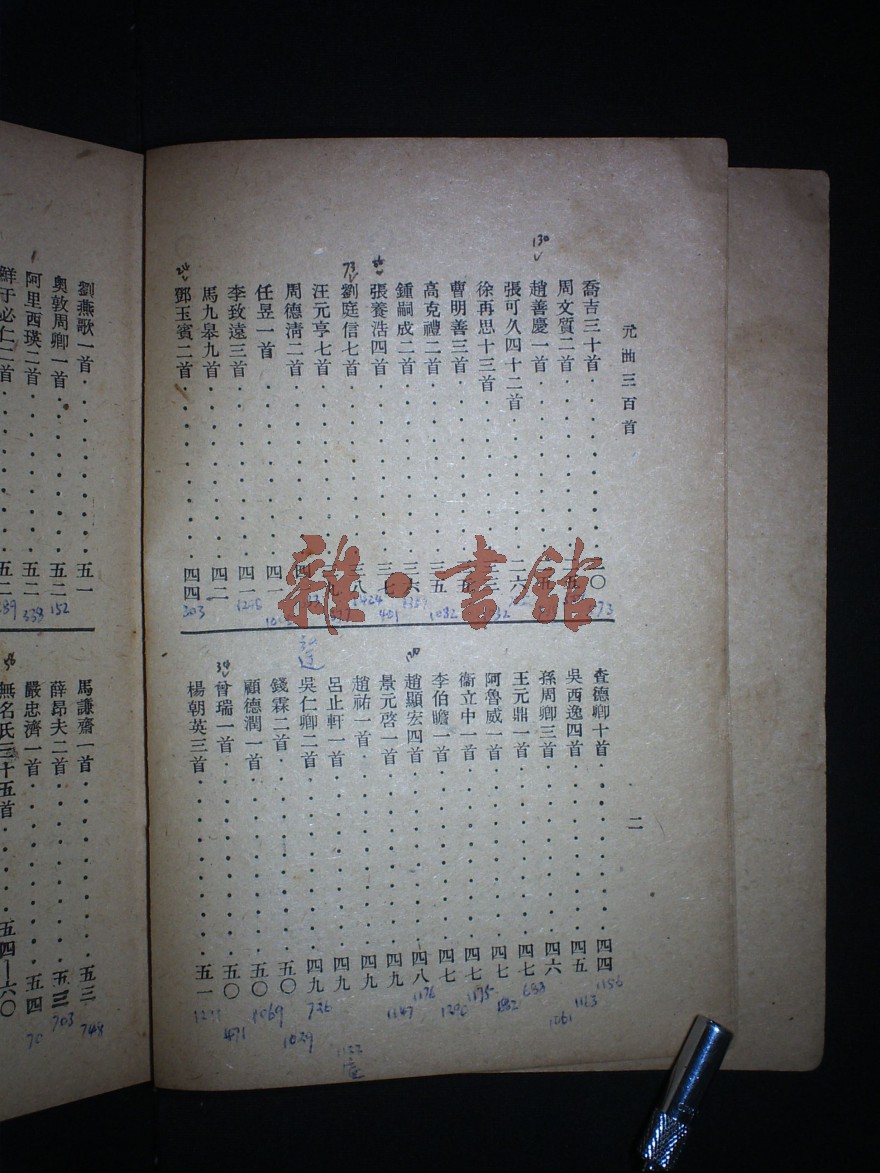 元曲三百首
喬吉三十首
周文質二首
趙善慶一首
張可久四十二首 二六
徐再思十三首
曹明善三首
高克禮二首 三五
鍾嗣成二首 三六
張養浩四首 三七
劉庭信七首
汪元亨七首
周德清二首
任昱一首 四一
李致遠三首 四一
馬九皋九首 四二
鄧玉賓二首 四四
查德卿十首 四四
吳西逸四首 四五
孫周卿三首 四六
王元鼎一首 四七
阿魯威一首 四七
衞立中一首 四七
李伯瞻一首 四七
趙顯宏四首 四八
景元啓一首 四九
趙祐一首 四九
呂止軒一首 四九
吳仁卿二首 四九
錢霖二首 五〇
顧德潤一首 五〇
曾瑞一首 五〇
楊朝英三首 五一
二
劉燕歌一首 五一
奧敦周卿一首 五二
阿里西瑛二首 五二
鮮于必仁二首 五二
馬謙齋一首 五三
薛昂夫二首 五三
嚴忠濟一首 五四
無名氏三十五首 五四—六〇
雜·書館
130
73
34
120
303
1082
1156
1163
1061
683
1175
1176
1147
726
1029
1069
471
152
338
748
703